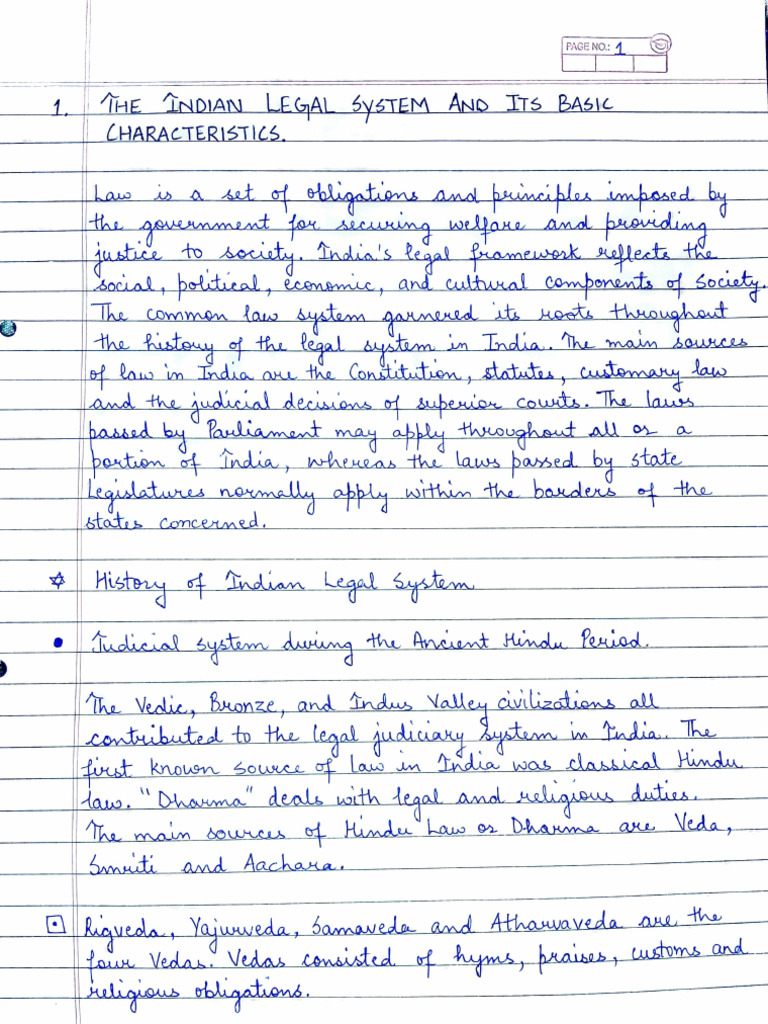 PAGE NO.: 1
1. THE INDIAN LEGAL SYSTEM AND ITS BASIC
CHARACTERISTICS.
Law is a set of obligations and principles imposed by
the government for securing welfare and providing
justice to society. India's legal framework reflects the
social, political, economic, and cultural components of society.
The common law system garnered its roots throughout
the history of the legal system in India. The main sources
of law in India are the Constitution, statutes, customary law
and the judicial decisions of superior courts. The laws
passed by Parliament may apply throughout all or a
portion of India, whereas the laws passed by state
legislatures normally apply within the borders of the
states concerned.
✡ History of Indian Legal System
• Judicial system during the Ancient Hindu Period.
The Vedic, Bronze, and Indus Valley civilizations all
contributed to the legal judiciary system in India. The
first known source of law in India was classical Hindu
law. "Dharma" deals with legal and religious duties.
The main sources of Hindu Law or Dharma are Veda,
Smriti and Aachara.
⊡ Rigveda, Yajurveda, Samaveda and Atharvaveda are the
four Vedas. Vedas consisted of hyms, praises, customs and
religious obligations.